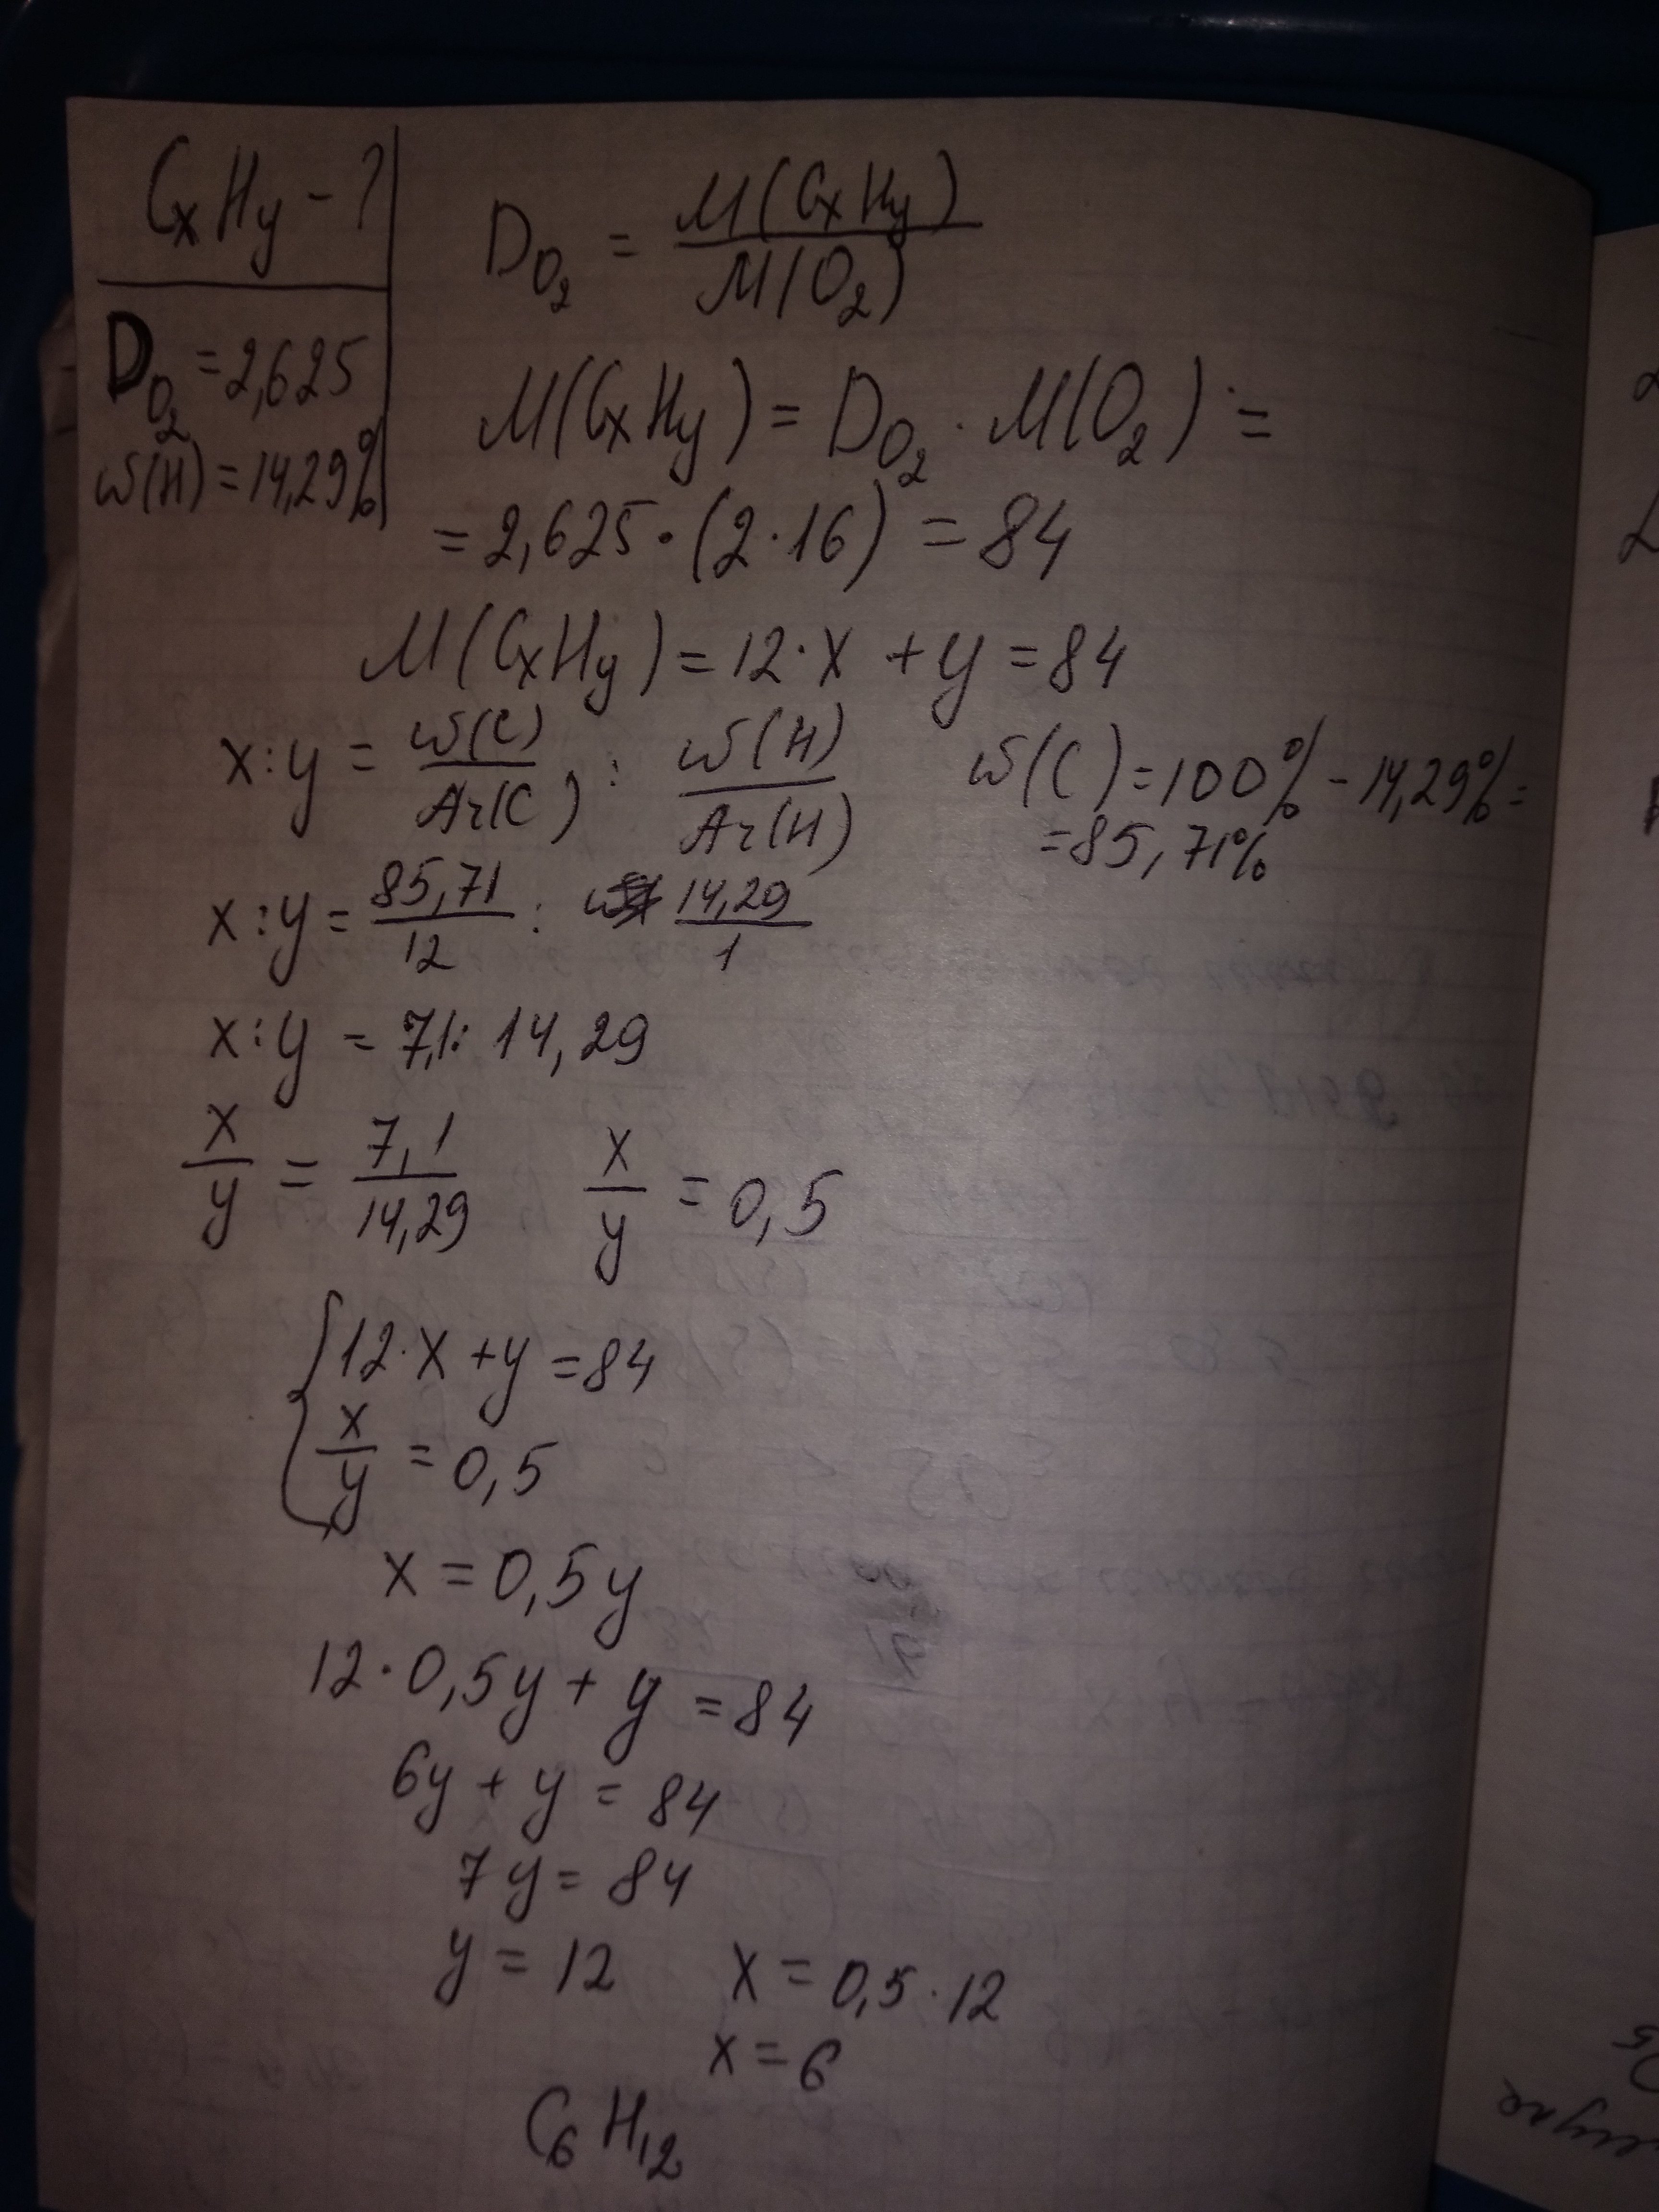 CxHy - ?
D_O2 = 2,625
w(H) = 14,29%
D_O2 = M(CxHy) / M(O2)
M(CxHy) = D_O2 · M(O2) =
= 2,625 · (2 · 16) = 84
M(CxHy) = 12 · x + y = 84
x : y = w(C) / Ar(C) : w(H) / Ar(H)
w(C) = 100% - 14,29% =
= 85,71%
x : y = 85,71 / 12 : 14,29 / 1
x : y = 7,1 : 14,29
x / y = 7,1 / 14,29    x / y = 0,5
{ 12 · x + y = 84
x / y = 0,5
x = 0,5y
12 · 0,5y + y = 84
6y + y = 84
7y = 84
y = 12    x = 0,5 · 12
x = 6
C6H12